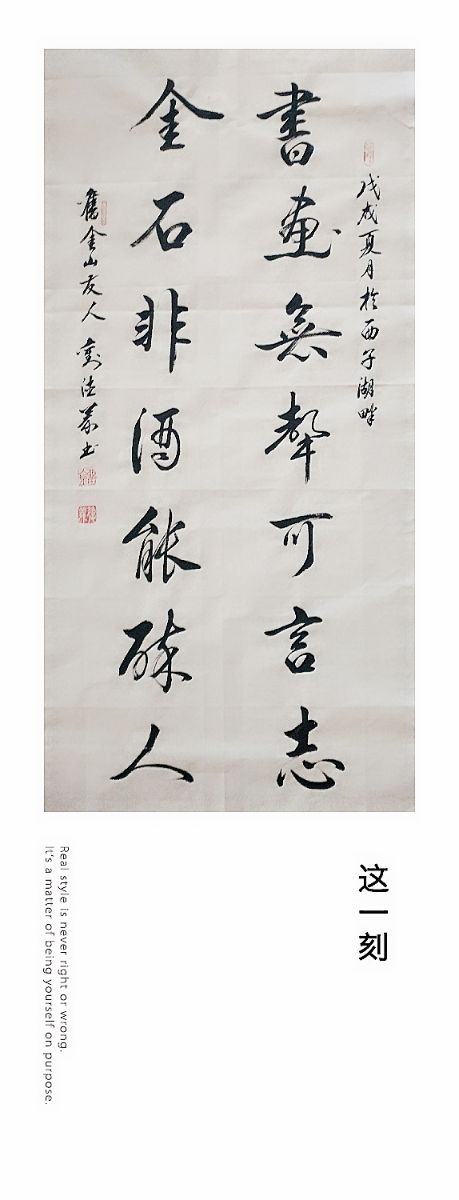 戊戌夏月於西子湖畔
書畫無聲可言志
金石非酒能醉人
舊金山友人劉法榮書
这一刻
Real style is never right or wrong.
It's a matter of being yourself on purpose.